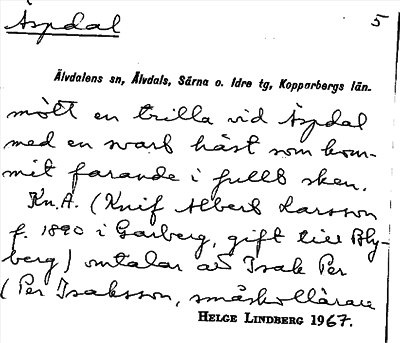 Åspdal 5
Älvdalens sn, Älvdals, Särna o. Idre tg, Kopparbergs län.
mött en trilla vid Åspdal
med en svart häst som kom-
mit farande i fullt sken.
Kn.A. (Knif Albert Larsson
f. 1890 i Garberg, gift till Bly-
berg) omtalar att Isak Per
(Per Isaksson, småskollärare
HELGE LINDBERG 1967.